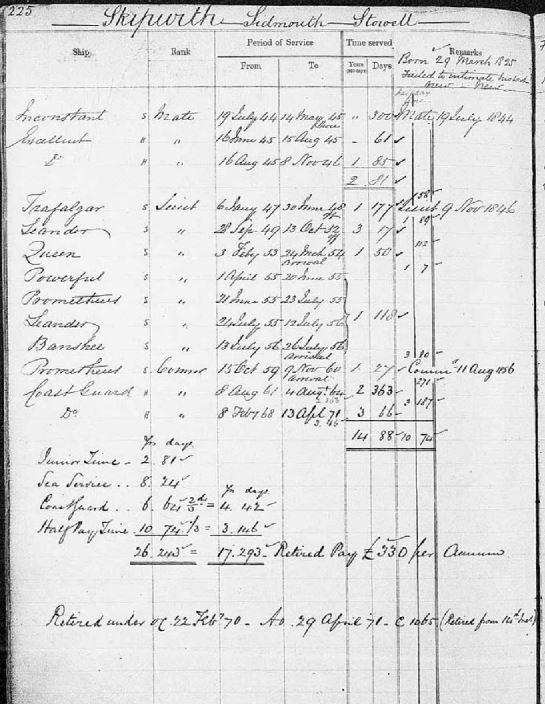 225
Skipwirth Sidmouth Stowell
Ship. Rank Period of Service Time served Remarks
From. To Years Days.
Born 29 March 1825
Failed to intimate
Inconstant S Mate 19 July 44 14 May 45 " 300 Mate 19 July 1844
Excellent H " 16 June 45 15 Aug 45 - 61
Do H " 16 Aug 45 8 Nov 46 1 85
2 81
158
Trafalgar S Lieut 6 Jany 47 30 June 48 1 177 Lieut 9 Nov 1846
1 89
Leander S " 28 Sep 49 13 Oct 52 3 17
112
Queen S " 3 Feby 53 24 Mch 54 1 50
arrival
1 7
Powerful S " 1 April 55 20 June 55
Prometheus S " 21 June 55 23 July 55
Leander S " 24 July 55 12 July 56 1 118
Banshee S " 13 July 56 26 July 56
arrival
3 80
Prometheus S Commr 15 Oct 59 9 Nov 60 1 27 Commr 11 Aug 1856
arrival
271
Coast Guard H " 8 Aug 61 4 Augt 64 2 363
3 187
Do H " 8 Feby 68 13 Apl 71 3 66
3. 46
14 88 10 74
Yrs days
Junior Time - 2. 81
Sea Service .. 8. 24
Yrs days
Coast Guard .. 6. 64 2/3 = 4. 42
Half Pay Time 10 74 1/3 = 3. 146
26. 243 = 17. 293 Retired Pay £330 per Annum
Retired under OC 22 Feby 70 - Ao 29 April 71 - C 1065 (Retired from